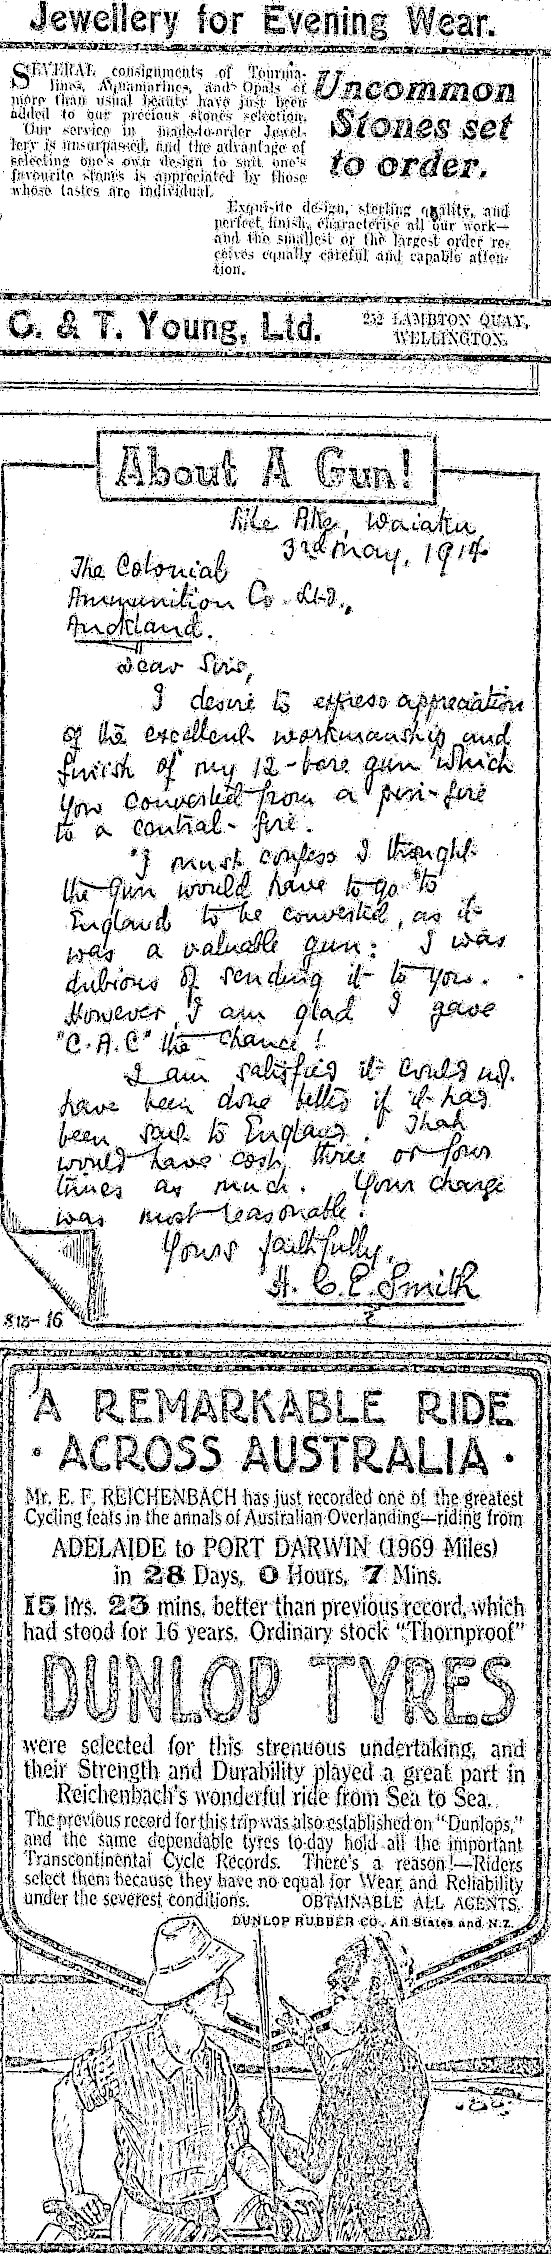 Jewellery for Evening Wear.
SEVERAL consignments of Tourma-
lines, Aquamarines, and Opals of
more than usual beauty have just been
added to our precious stones selection.
Our service in made-to-order Jewel-
lery is unsurpassed, and the advantage of
selecting one's own design to suit one's
favourite stones is appreciated by those
whose tastes are individual.
Uncommon
Stones set
to order.
Exquisite design, sterling quality, and
perfect finish, characterise all our work—
and the smallest or the largest order re-
ceives equally careful and capable atten-
tion.
C. & T. Young, Ltd.
252 LAMBTON QUAY,
WELLINGTON.
About A Gun!
Ake Ake, Waiuku
3rd May, 1914
The Colonial
Ammunition Co. Ltd.,
Auckland.
Dear Sirs,
I desire to express appreciation
of the excellent workmanship and
finish of my 12-bore gun which
you converted from a pin-fire
to a central-fire.
"I must confess I thought
the gun would have to go to
England to be converted, as it
was a valuable gun: I was
dubious of sending it to you.
However, I am glad I gave
"C.A.C" the chance!
I am satisfied it could not
have been done better if it had
been sent to England. That
would have cost three or four
times as much. Your charge
was most reasonable!
Yours faithfully,
H. C. E. Smith
A REMARKABLE RIDE
· ACROSS AUSTRALIA ·
Mr. E. F. REICHENBACH has just recorded one of the greatest
Cycling feats in the annals of Australian Overlanding—riding from
ADELAIDE to PORT DARWIN (1969 Miles)
in 28 Days, 0 Hours, 7 Mins.
15 hrs. 23 mins. better than previous record, which
had stood for 16 years. Ordinary stock "Thornproof"
DUNLOP TYRES
were selected for this strenuous undertaking, and
their Strength and Durability played a great part in
Reichenbach's wonderful ride from Sea to Sea.
The previous record for this trip was also established on "Dunlops,"
and the same dependable tyres to-day hold all the important
Transcontinental Cycle Records. There's a reason!—Riders
select them because they have no equal for Wear and Reliability
under the severest conditions. OBTAINABLE ALL AGENTS.
DUNLOP RUBBER CO., All States and N.Z.